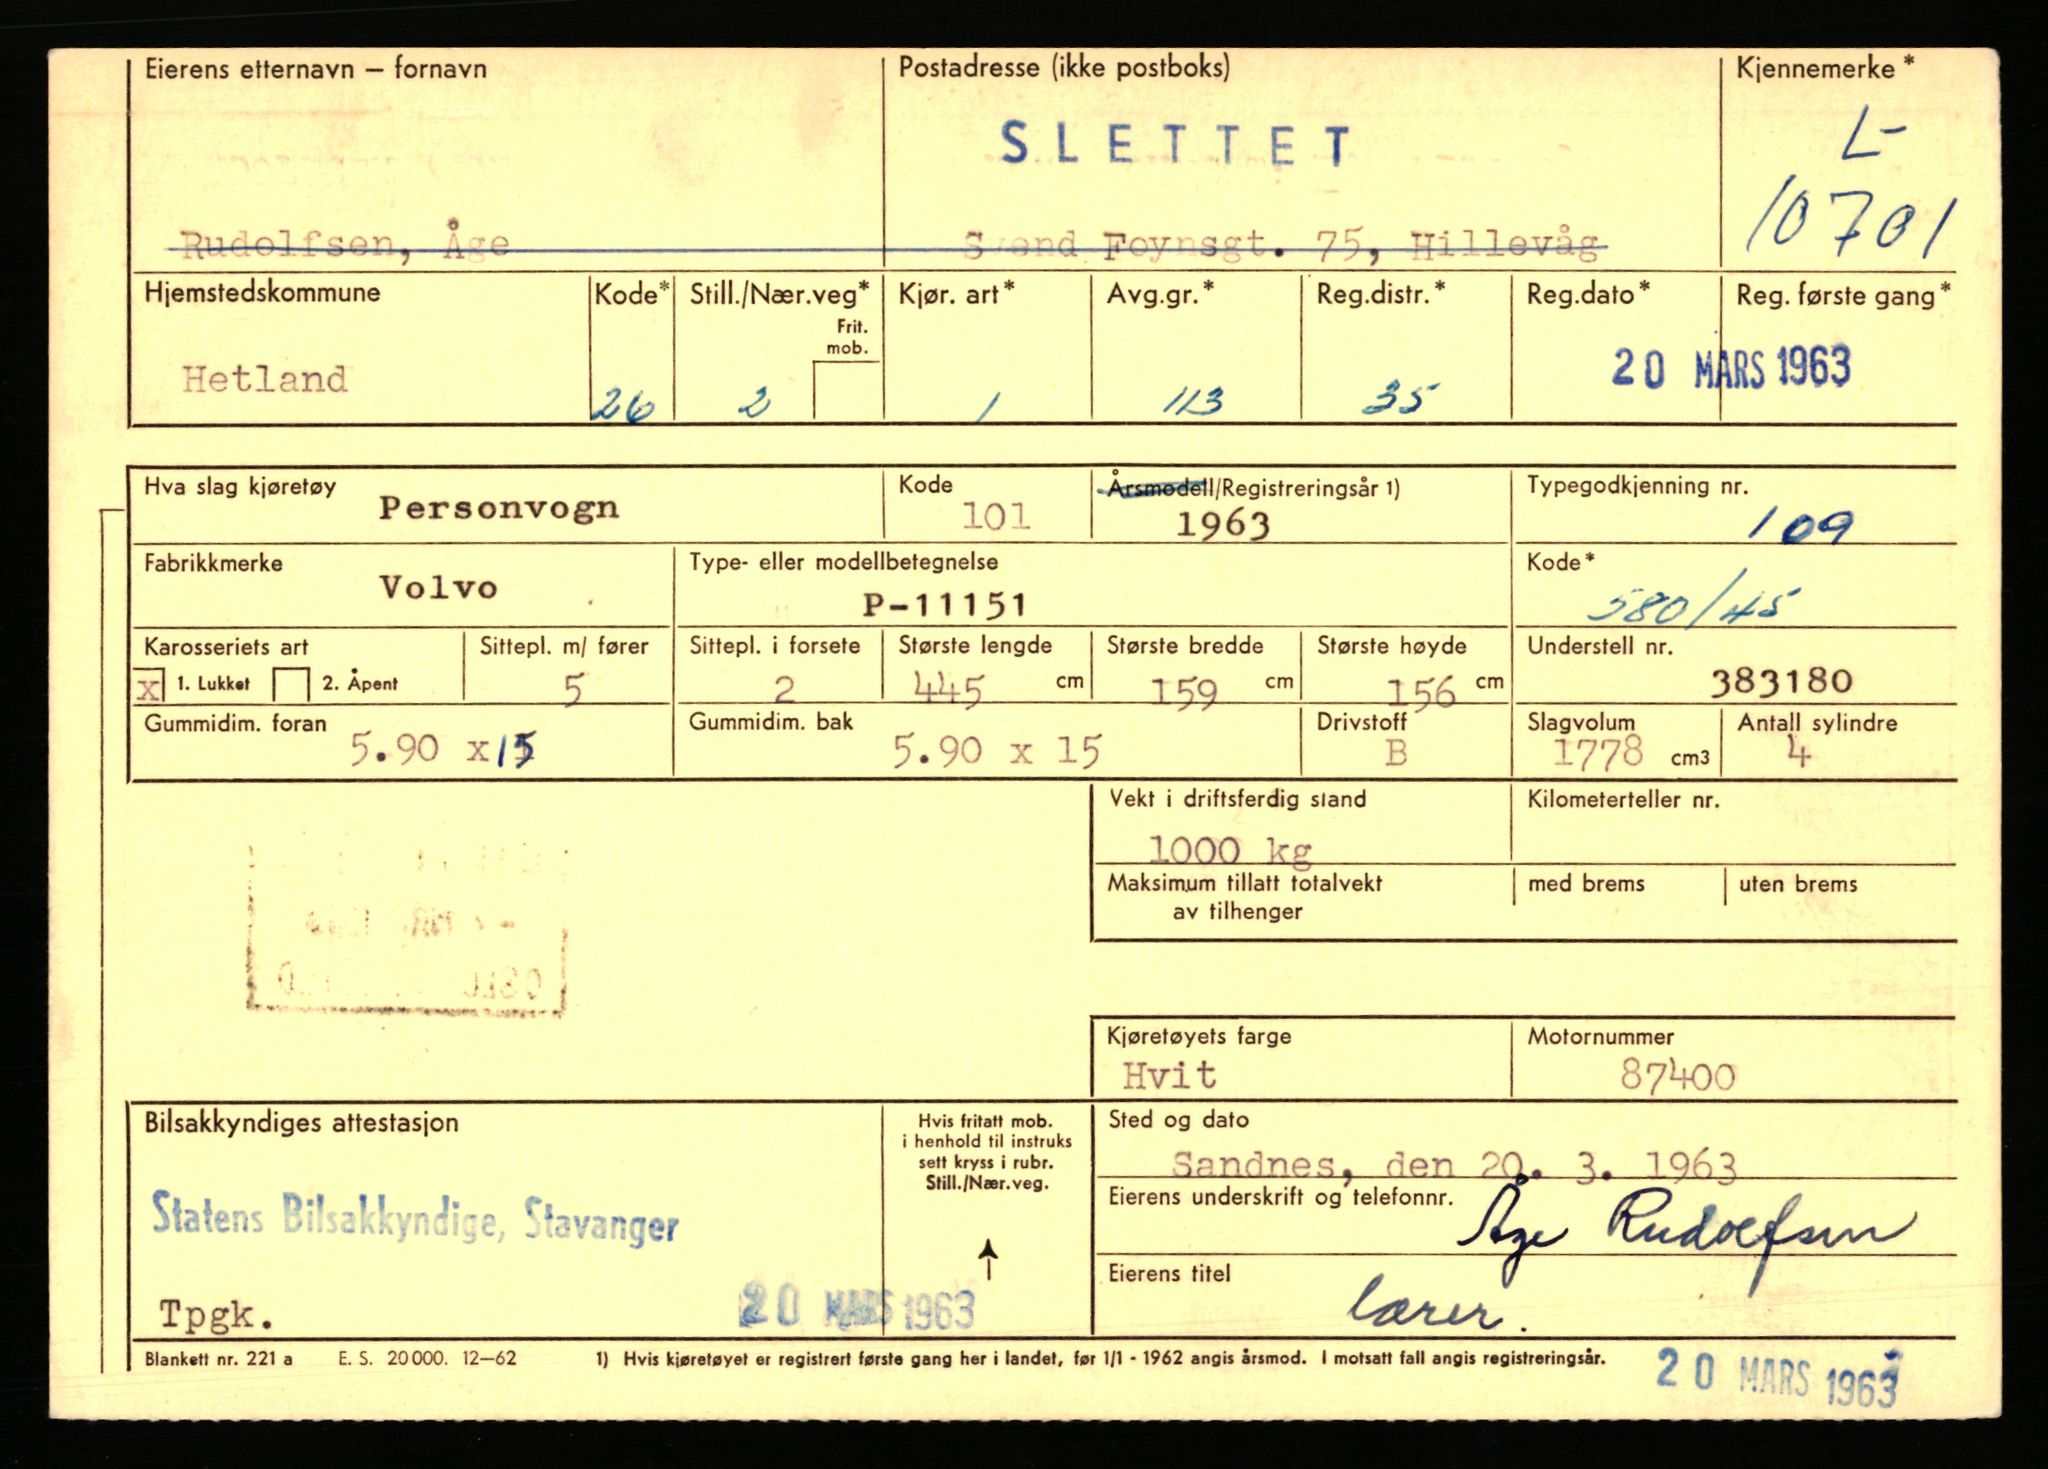 Eierens etternavn – fornavn Postadresse (ikke postboks) Kjennemerke*
SLETTET L-
10701
Rudolfsen, Åge Svend Foynsgt. 75, Hillevåg
Hjemstedskommune Kode* Still./Nær.veg* Kjør. art* Avg.gr.* Reg.distr.* Reg.dato* Reg. første gang*
Frit.
mob.
Hetland 26 2 1 113 35 20 MARS 1963
Hva slag kjøretøy Kode Årsmodell/Registreringsår 1) Typegodkjenning nr.
Personvogn 101 1963 109
Fabrikkmerke Type- eller modellbetegnelse Kode*
Volvo P-11151 580/45
Karosseriets art Sittepl. m/ fører Sittepl. i forsete Største lengde Største bredde Største høyde Understell nr.
x 1. Lukket 2. Åpent 5 2 445 cm 159 cm 156 cm 383180
Gummidim. foran Gummidim. bak Drivstoff Slagvolum Antall sylindre
5.90 x 15 5.90 x 15 B 1778 cm3 4
Vekt i driftsferdig stand Kilometerteller nr.
1000 kg
Maksimum tillatt totalvekt med brems uten brems
av tilhenger
Kjøretøyets farge Motornummer
Hvit 87400
Bilsakkyndiges attestasjon Hvis fritatt mob. Sted og dato
i henhold til instruks
sett kryss i rubr.
Still./Nær.veg.
Sandnes, den 20. 3. 1963
Eierens underskrift og telefonnr.
Statens Bilsakkyndige, Stavanger Åge Rudolfsen
Eierens titel
Tpgk. 20 MARS 1963 lærer.
Blankett nr. 221 a E. S. 20 000. 12–62 1) Hvis kjøretøyet er registrert første gang her i landet, før 1/1 - 1962 angis årsmod. I motsatt fall angis registreringsår.
20 MARS 1963